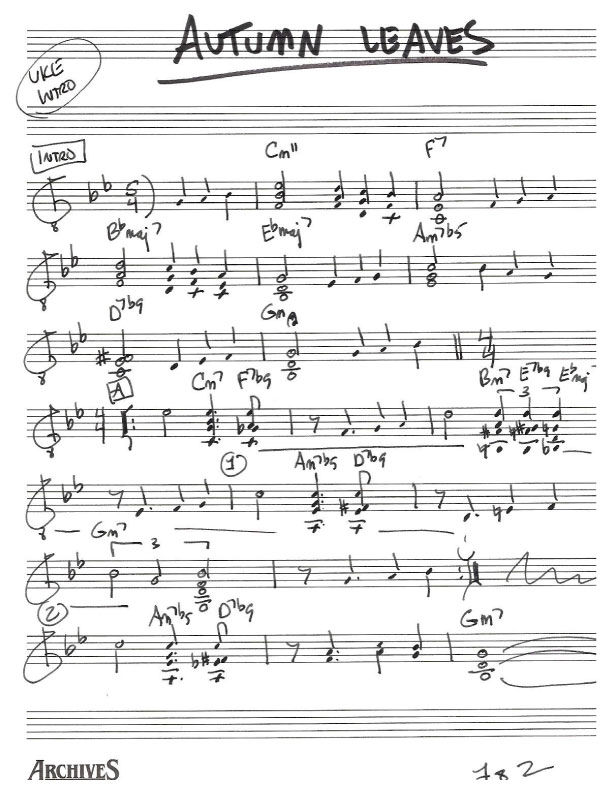 AUTUMN LEAVES
UKE INTRO
INTRO
Cm11 F7
5/4
Bbmaj7 Ebmaj7 Am7b5
D7b9 Gm
4/4
A Cm7 F7b9 Bm7 E7b9 Ebmaj7
4/4
3
1 Am7b5 D7b9
Gm7
3
2 Am7b5 D7b9 Gm7
ARCHIVES 1 of 2